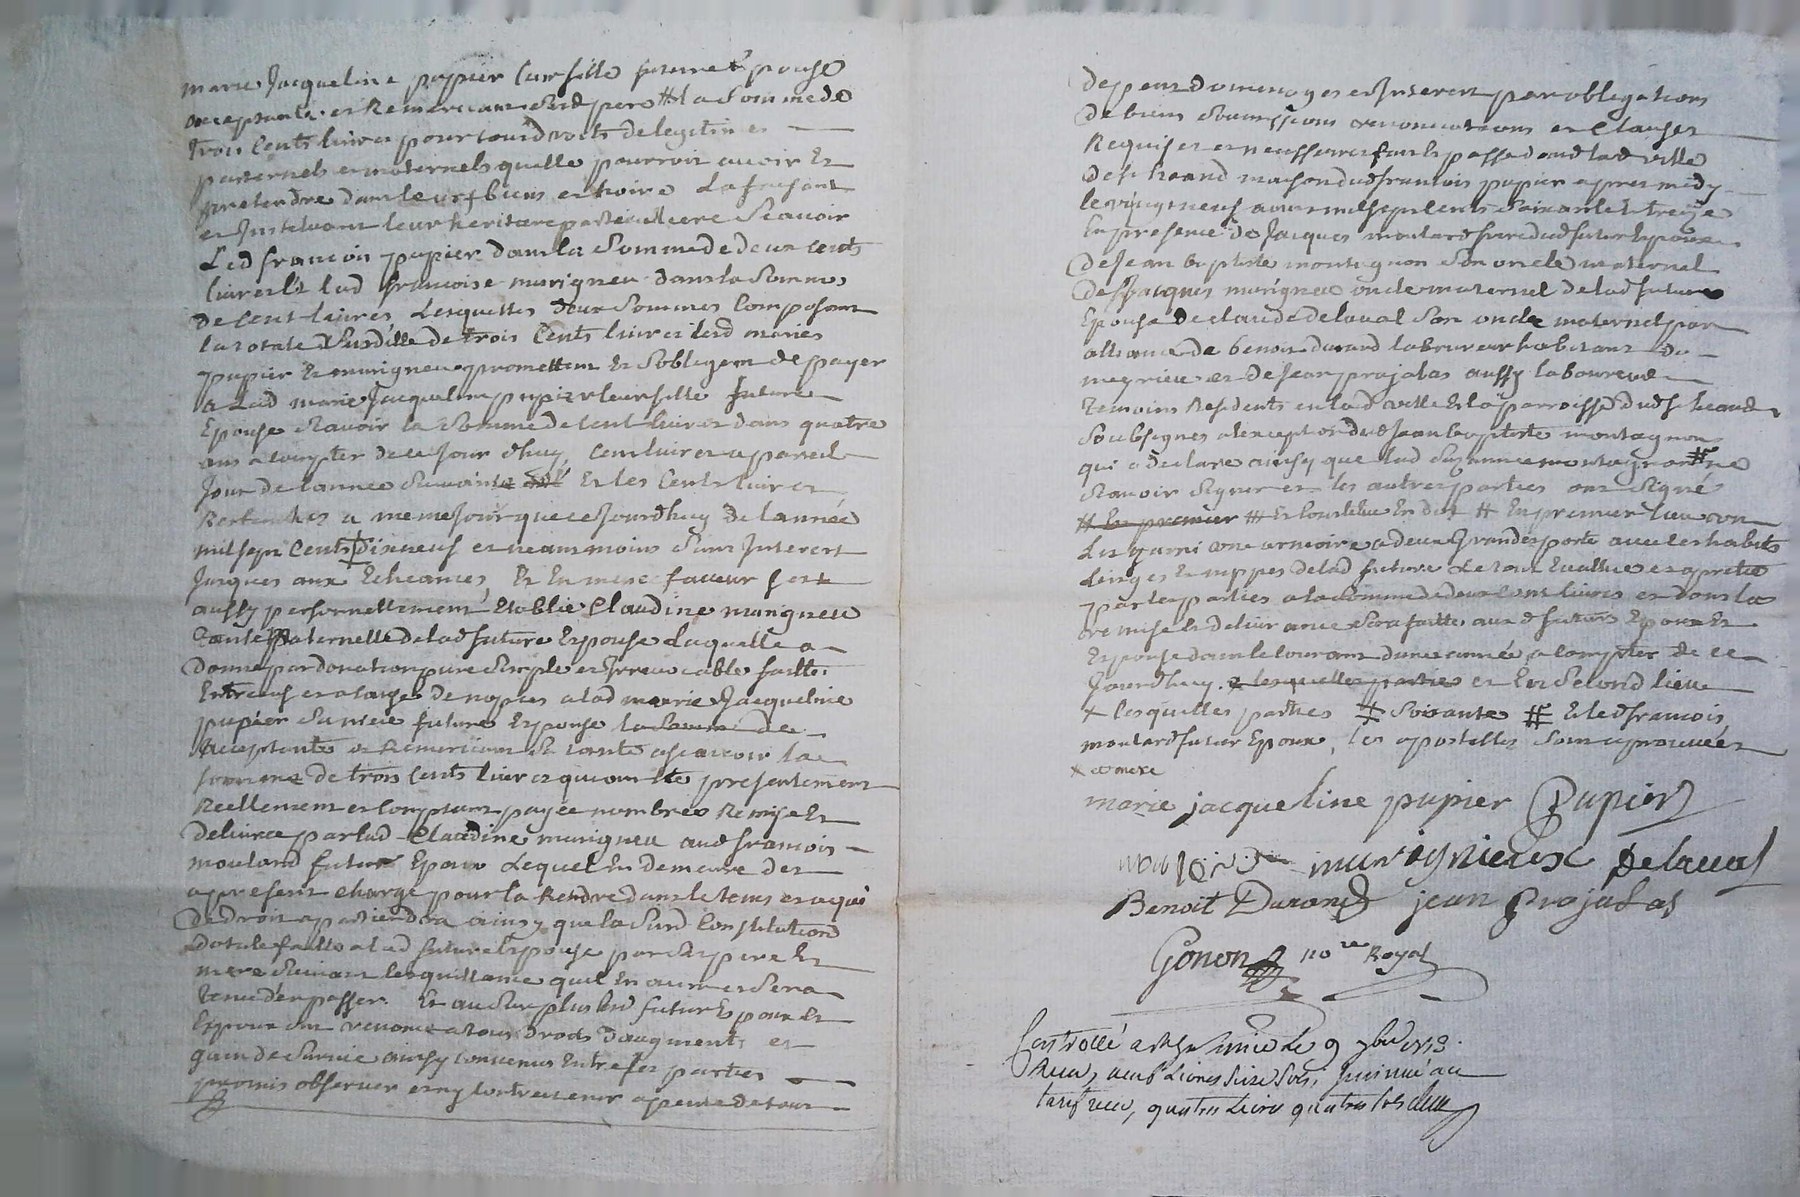 marie Jacqueline pupier leur fille future Epouse
acceptante et Remerciant sesd pere # la Somme de
trois Cents livres pour tous droits de legitimes
paternels et maternels quelle pourroit avoir Et
pretendre dans leurs biens et hoirs La faisant
et Instituant leur heritiere particulliere Scavoir
Led francois pupier dans la Somme de deux cents
livres Et lad francoise murigneu dans la Somme
de Cent livres, Lesquelles deux Sommes Composant
la totale Susditte de trois Cents livres lesd maries
pupier Et murigneu promettent Et Soblegent de payer
a Lad marie Jacqueline pupier leur fille future
Epouse Scavoir la Somme de Cent livres dans quatre
ans a compter de ce Jour dhuy, Cent livres a pareil
Jour de lannée Suivante Et les Cents livres
Restantes a meme Jour que ce Jourdhuy de lannée
mil sept Cents dixneuf et neanmoins Sans Interest
Jusques aux Echeances, Et En mesme faveur sest
aussy personnellement Etablie Claudine murigneu
tante paternelle de lad future Epouse Laquelle a
donné par donation pure Simple et Irrevocable faitte
Entre vifs et a cause de nopces a lad marie Jacqueline
pupier Sa niece future Epouse la Somme de
acceptante et Remerciant Sa tante a scavoir la
somme de trois Cents livres qui ont Eté presentement
Reellement et Comptant payée nombrée Remise Et
delivrée par lad Claudine murigneu aud francois
moulard futur Epoux Lequel En demeure des
a present chargé pour la Rendre dans le tems et a qui
de droit apartiendra ainsy que la Susd Constitution
dotale faitte a lad future Epouse par Ses pere Et
mere Suivant les quittance quil En aura et Sera
tenu den passer. Et au Surplus lesd futurs Epoux Et
Epouse ont renoncé a tous droits daugments et
gain de Survie ainsy convenus Entre les parties
promis observer et ny contrevenir a peine de tous
despens domages et Interest par obligations
de biens Soumissions renonciations et Clauses
Requises et necessaires fait Et passé dans lad ville
de St heand maison dud francois pupier apres midy
le vingt neuf aout mil sept Cents Soixante Et treize
En presence de Jacques moulard frere dud futur Epoux
de Jean baptiste montagnon Son oncle maternel
de Jacques murigneu oncle maternel de lad future
Epouse de claude delaval Son oncle maternel par
alliance de benoit durand laboureur habitant de
meyrieu et de Jean prajalas aussy laboureur
temoins Residents en lad ville Et la parroisse dud St heand
Soubsignes a lexception dud Jean baptiste montagnon
qui a declaré ainsy que lad Suzanne montagnon # ne
Scavoir Signer et les autres parties ont Signé
# En premier # Et Coustelue En dot # En premier lieu un
Lit garni une armoire a deux Grandes porte avec les habits
Linges Et nippes de lad future Le tout Evallué et apretié
par les parties a la Somme de deux Cent livres et dont la
remise Et delivrance Sera faitte aux d futurs Epoux Et
Espouse dans le courant dune année a compter de ce
Jourdhuy. lesquelles parties et En Second lieu
+ lesquelles parties ‡ Soixante # Et led francois
moulard futur Epoux, les apostilles Sont aprouvées
x et mere
marie jacqueline pupier Pupier
moulard murignieux Delaval
Benoit Durand jean Prajalas
Gonon nore Royal
Controllé a St le 9 7bre 1773.
Reçu, neuf livres Seize Sols, Insinué au
tarif reçu, quatre livres quatre sols